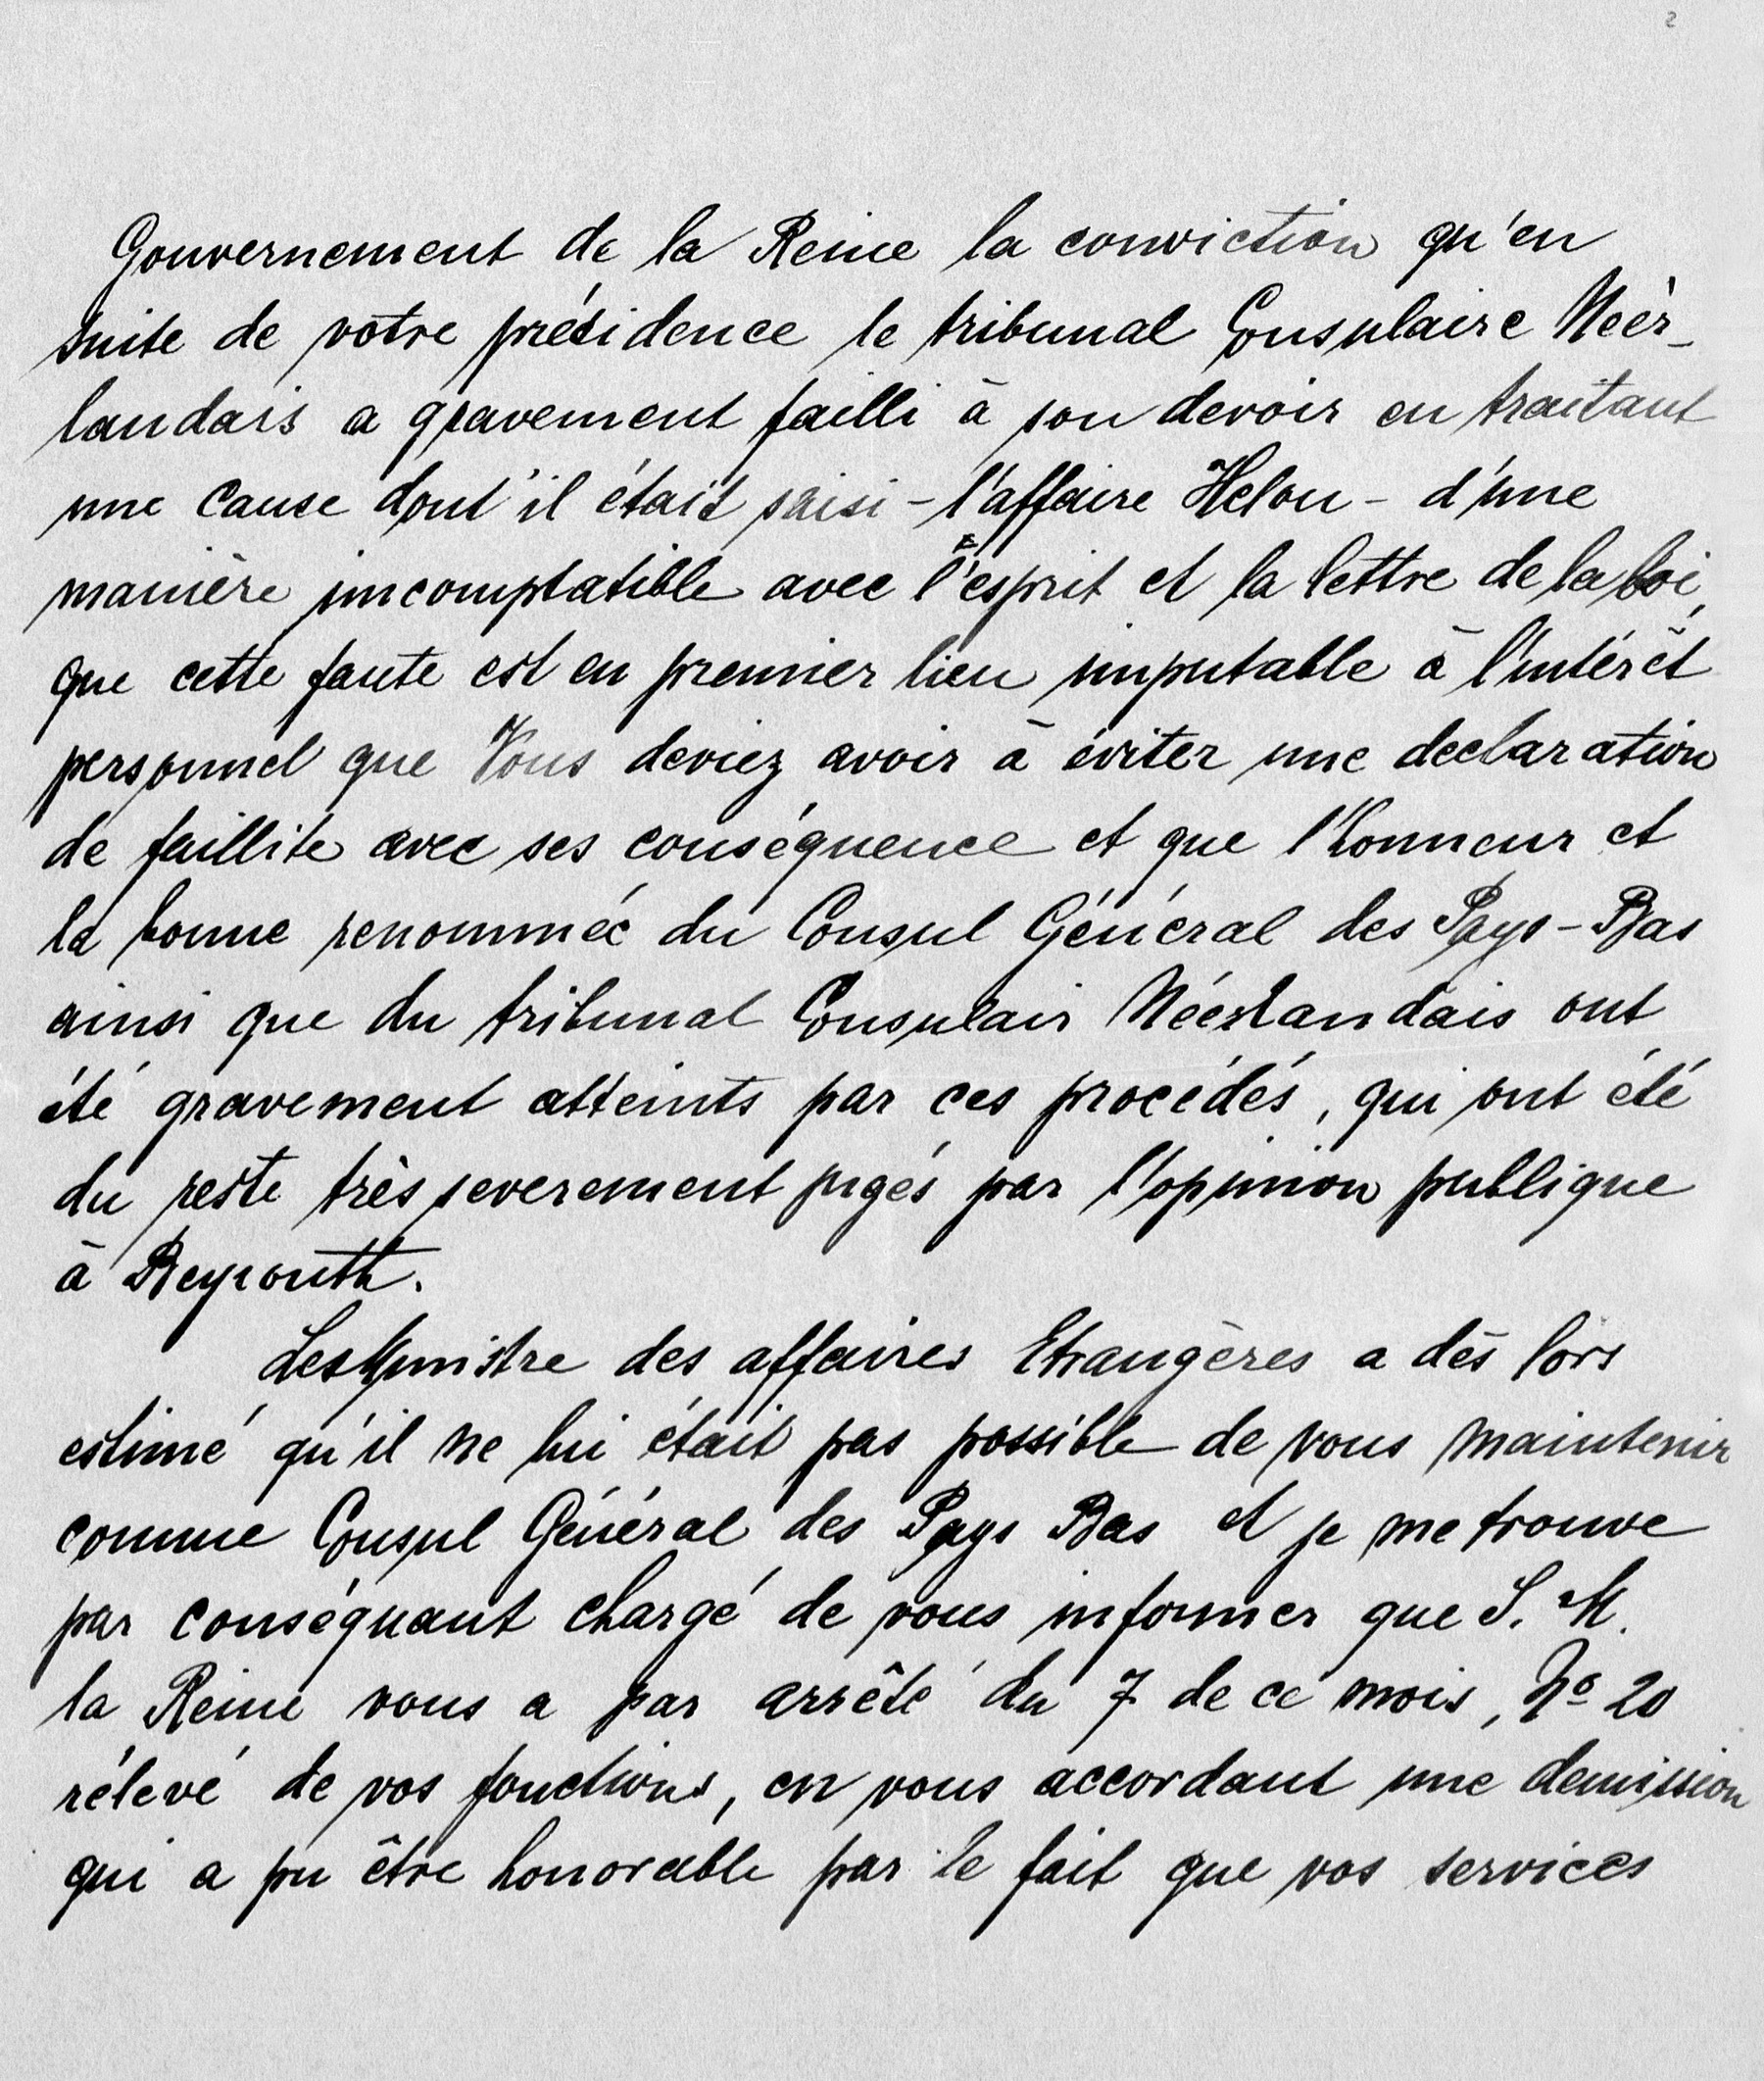 2
Gouvernement de la Reine la conviction qu'en
suite de votre présidence le tribunal Consulaire Néèr-
landais a gravement failli à son devoir en traitant
une cause dont il était saisi - l'affaire Helou - d'une
manière imcomptatible avec l'esprit et la lettre de la loi,
que cette faute est en premier lieu imputable à l'intérêt
personnel que Vous deviez avoir à éviter une declaration
de faillite avec ses conséquence et que l'honneur et
la bonne renommée du Consul Général des Pays-Bas
ainsi que du tribunal Consulair Néerlandais ont
été gravement atteints par ces procédés, qui ont été
du reste très severement jugés par l'opinion publique
à Beyrouth.
Les Ministre des affaires Etrangères a dès lors
estimé qu'il ne lui était pas possible de vous maintenir
comme Consul Général des Pays Bas et je me trouve
par conséquant chargé de vous informer que S. M.
la Reine vous a par arrêté du 7 de ce mois, No 20
rélevé de vos fonctions, en vous accordant une demission
qui a pu être honorable par le fait que vos services